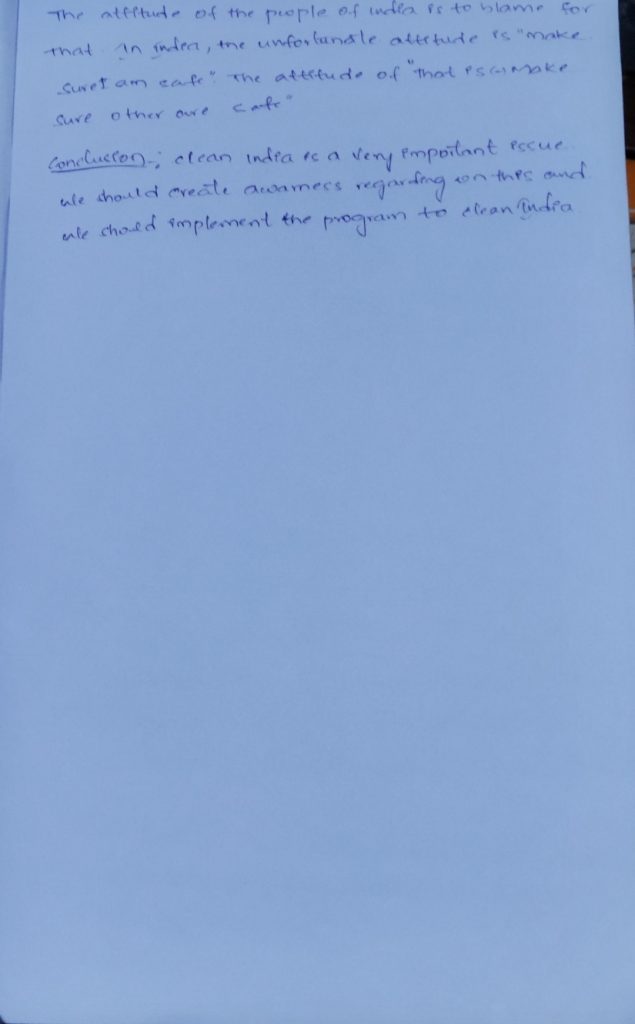 The attitude of the people of india is to blame for
that. In india, the unfortunate attitude is "make
sure I am safe". The attitude of "that is make
sure other are safe"
Conclusion:; clean india is a very important issue.
we should create awarness regarding on this and
we should implement the program to clean india